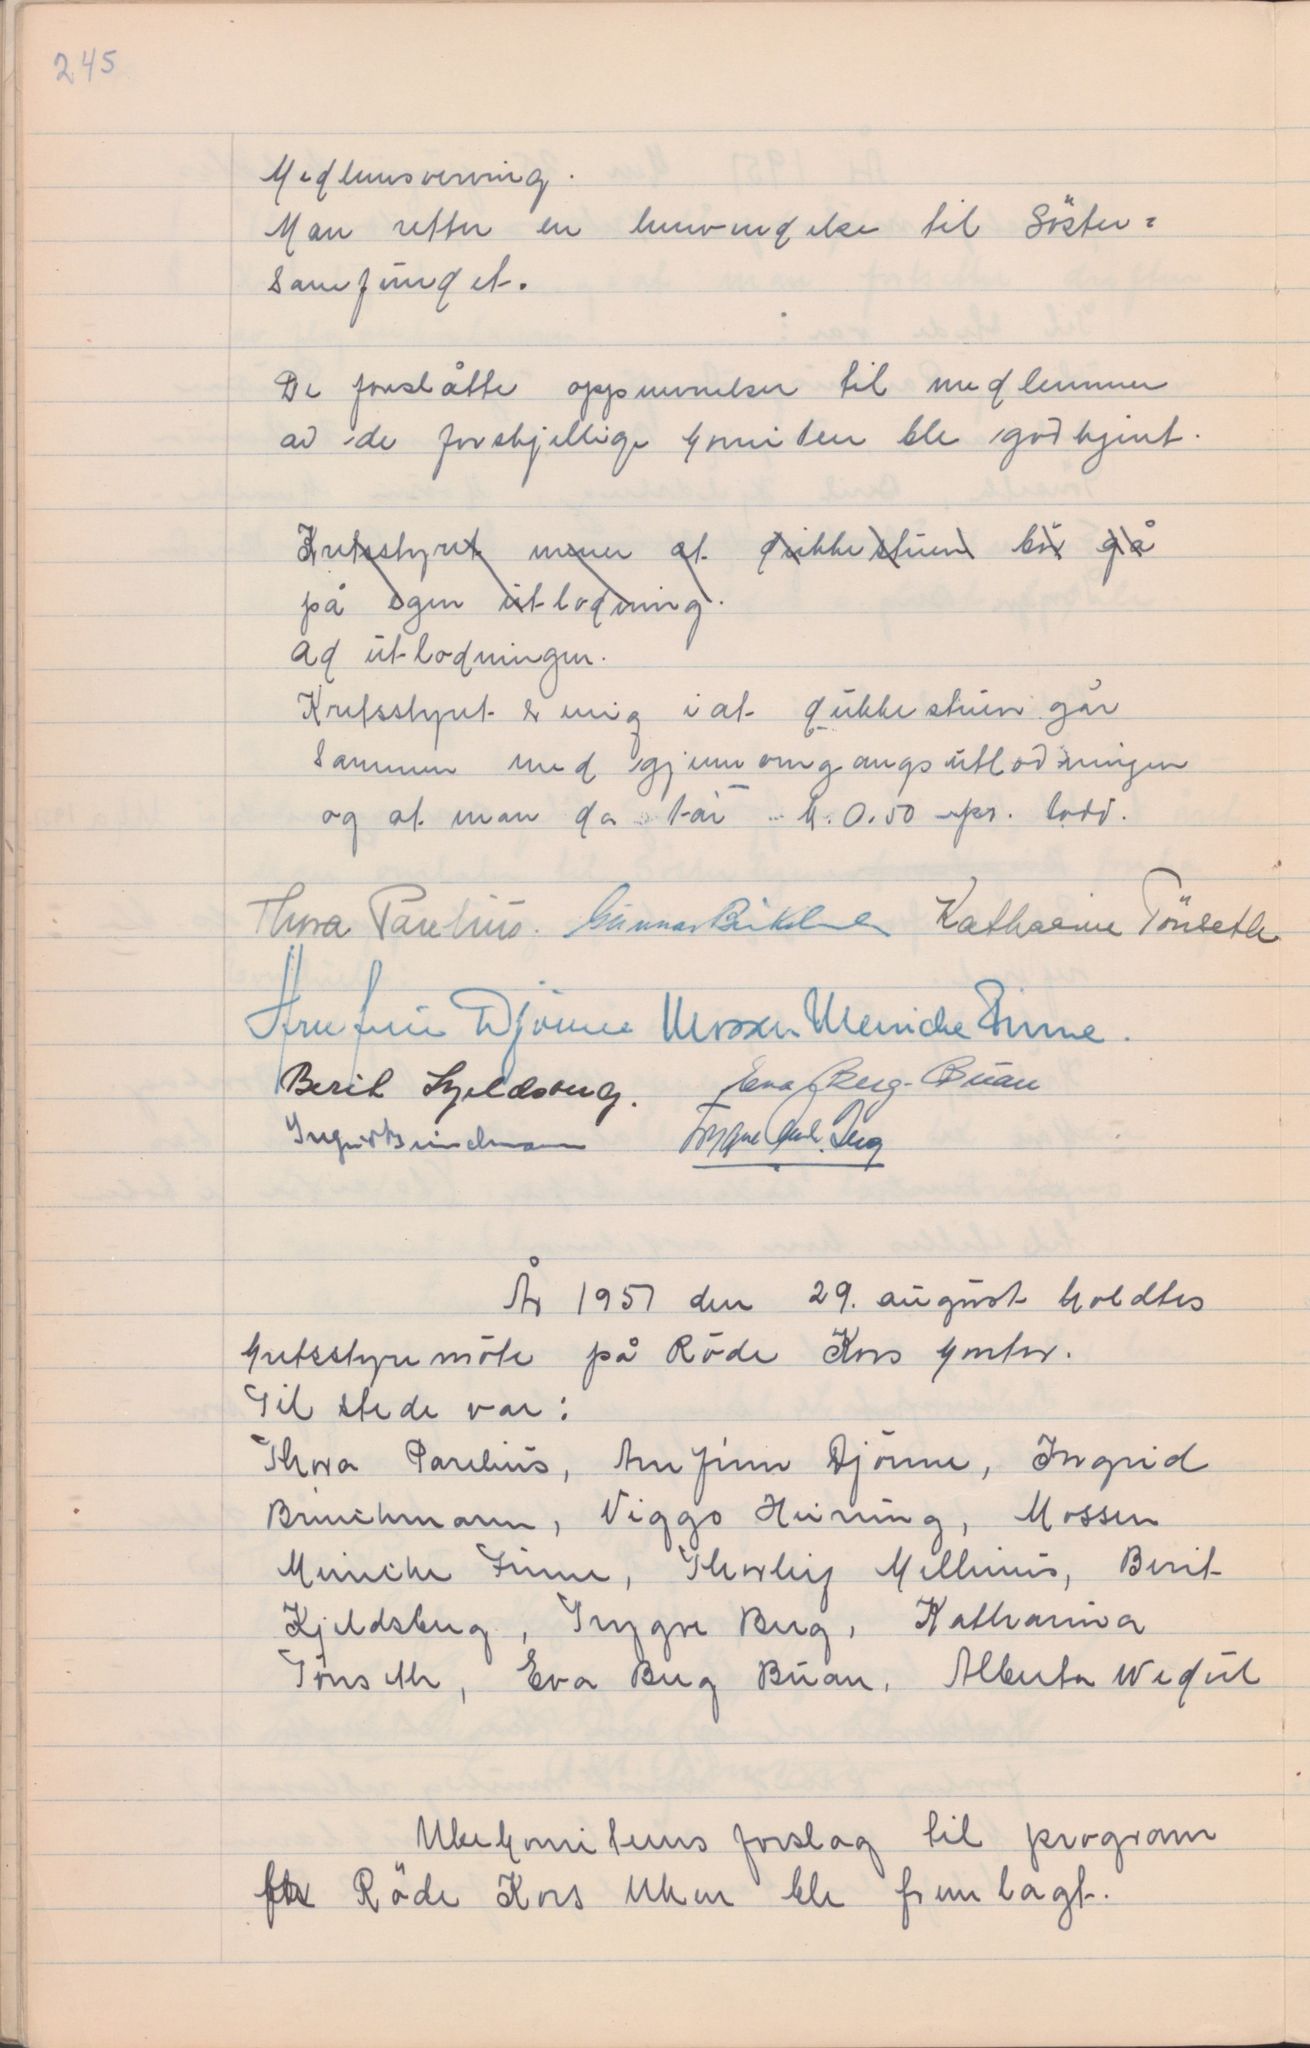 245
Medlemsverving.
Man retter en henvendelse til Söster=
Samfundet.
De foreslåtte oppnevnelser til medlemmer
av de forskjellige komiteer ble godkjent.
Kretsstyret mener at dukkestuen bör gå
på egen utlodning.
Ad utlodningen.
Kretsstyret er enig i at dukkestuen går
sammen med gjennomgangsutlodningen
og at man da tar k. 0.50 pr. lodd.
Thora Parelius. Gunnar Katharina Tönseth
Arnfinn Djönne Mossen Meincke Finne.
Berit Kjeldsberg. Eva Berg-Buan
Ingrid Brinchmann Trygve Berg
År 1957 den 29. august holdtes
kretsstyremöte på Röde Kors kontor.
Til stede var:
Thora Parelius, Arnfinn Djönne, Ingrid
Brinchmann, Viggo Heining, Mossen
Meincke Finne, Thorleif Mellinus, Berit
Kjeldsberg, Trygve Berg, Katharina
Tönseth, Eva Berg Buan, Alberta Wedül
Ukekomiteens forslag til program
for Röde Kors Uken ble fremlagt.